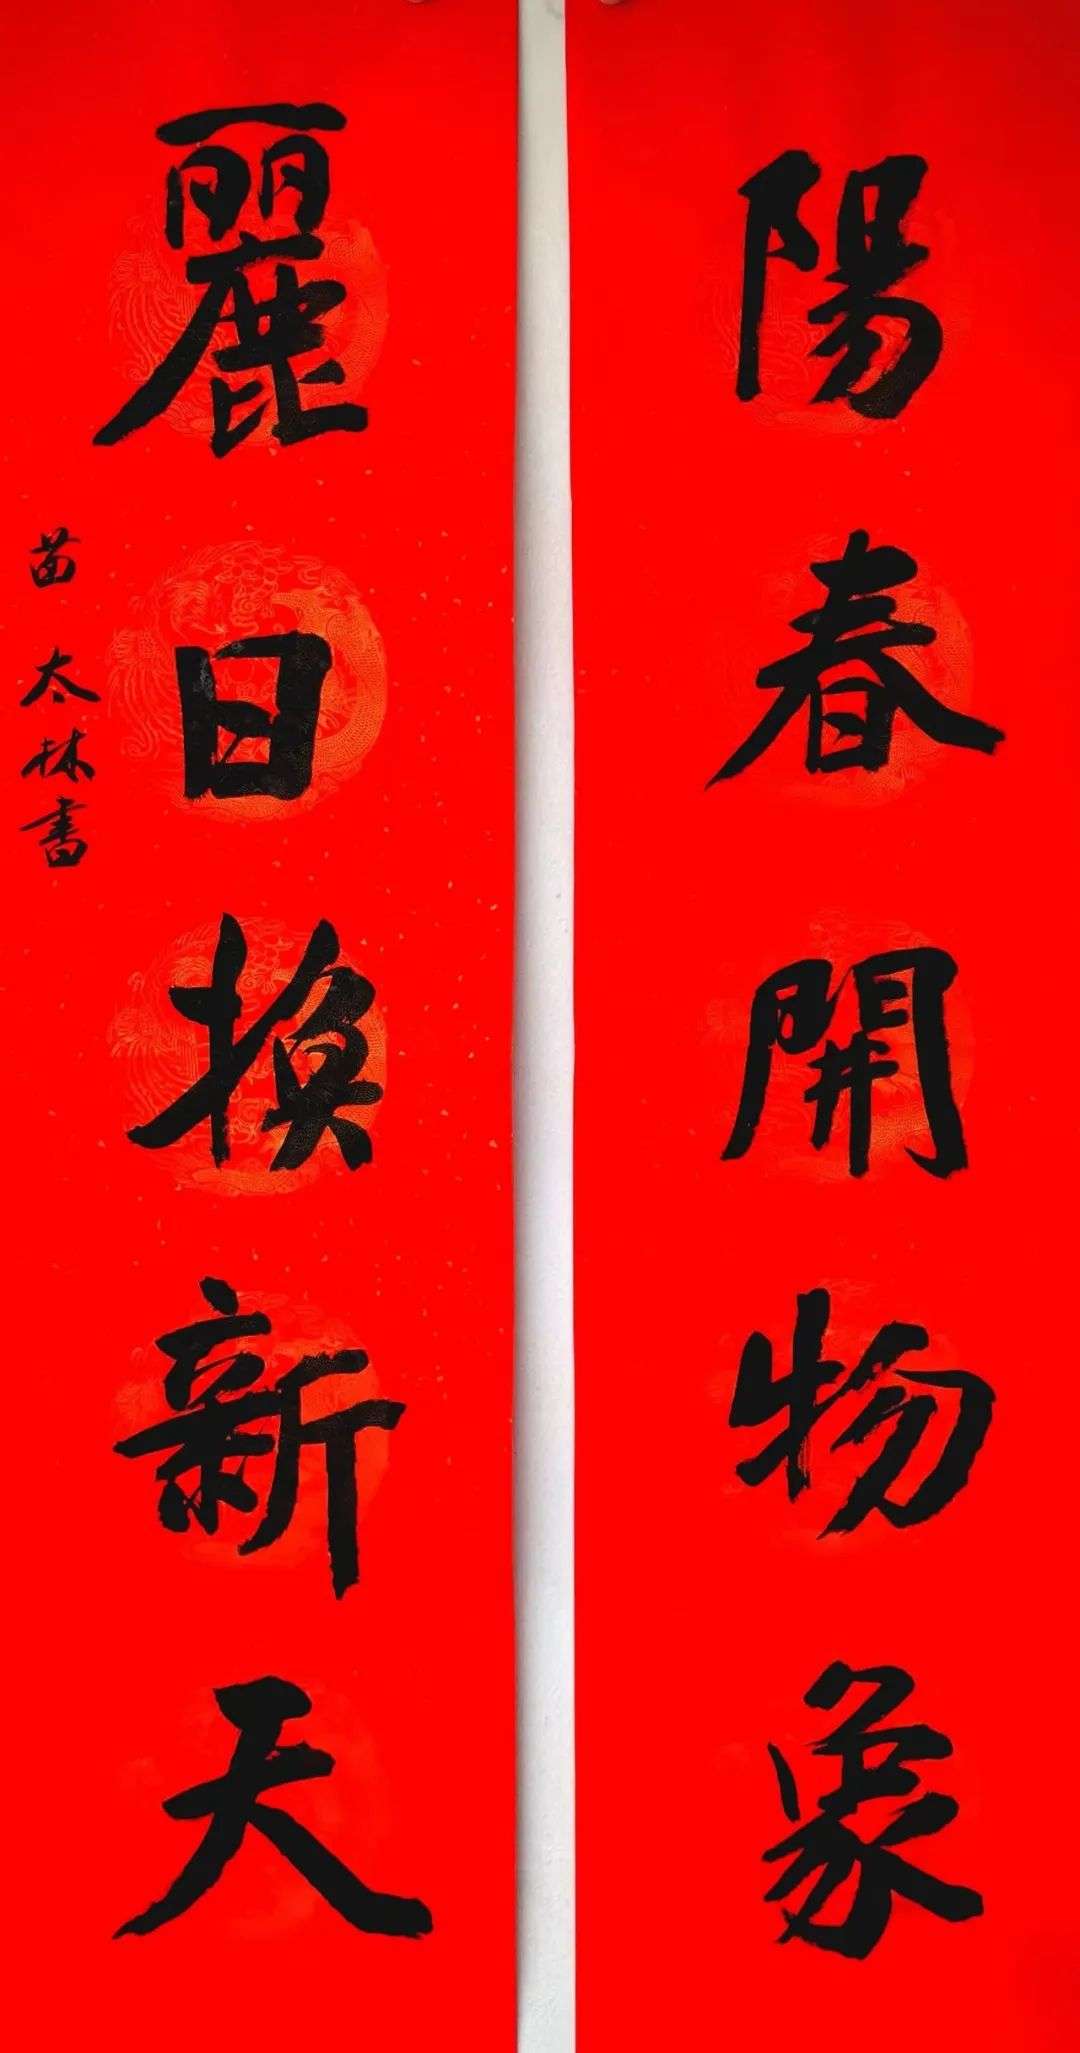 陽春開物象
麗日換新天
苗太林書